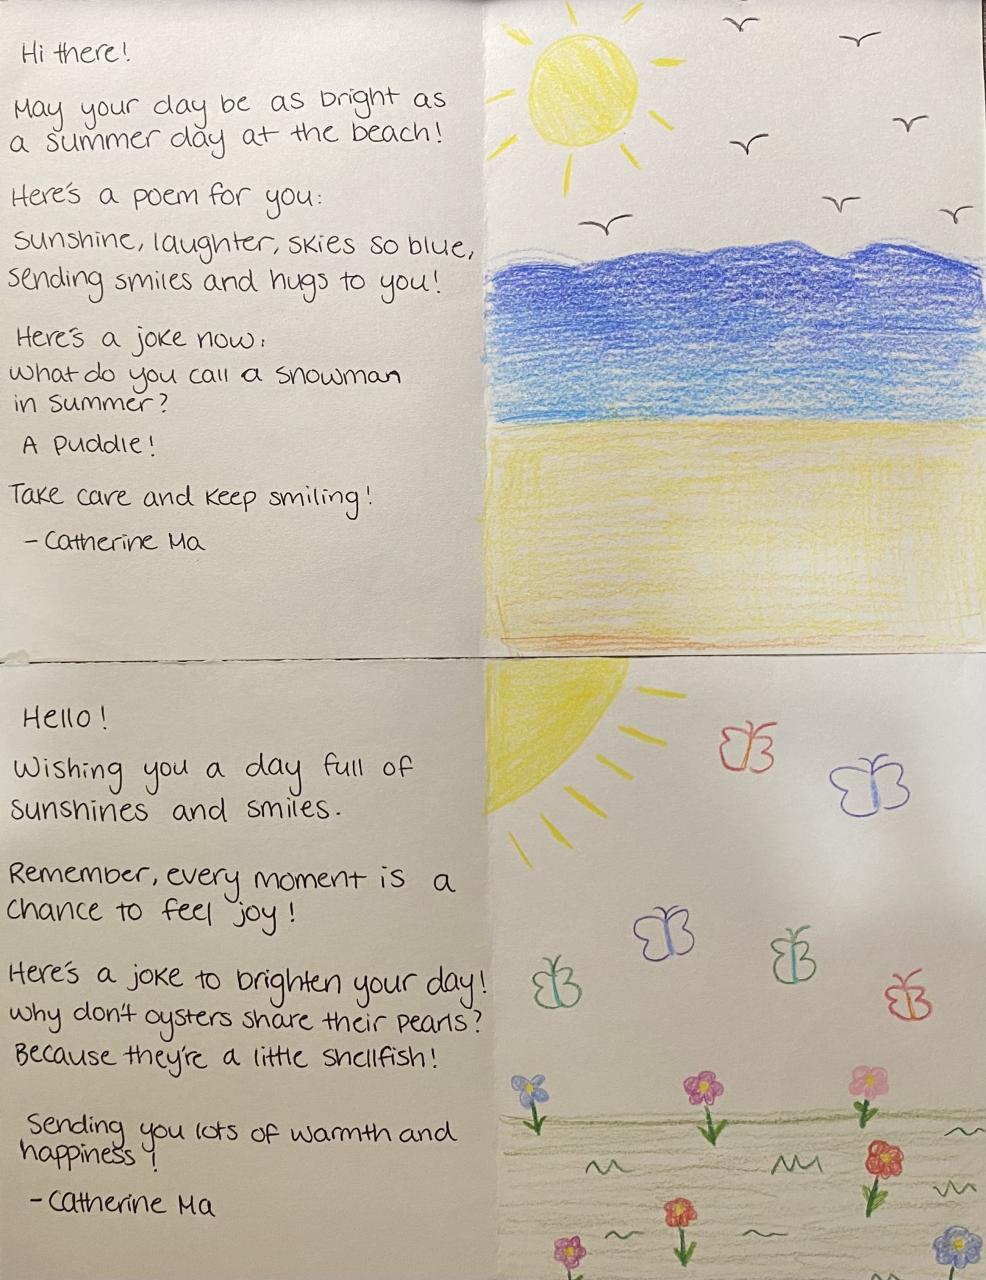 Hi there!
May your day be as bright as
a summer day at the beach!
Here's a poem for you:
Sunshine, laughter, skies so blue,
sending smiles and hugs to you!
Here's a joke now:
What do you call a snowman
in summer?
A Puddle!
Take care and keep smiling!
- Catherine Ma
Hello!
Wishing you a day full of
sunshines and smiles.
Remember, every moment is a
chance to feel joy!
Here's a joke to brighten your day!
Why don't oysters share their pearls?
Because they're a little shellfish!
Sending you lots of warmth and
happiness!
- Catherine Ma